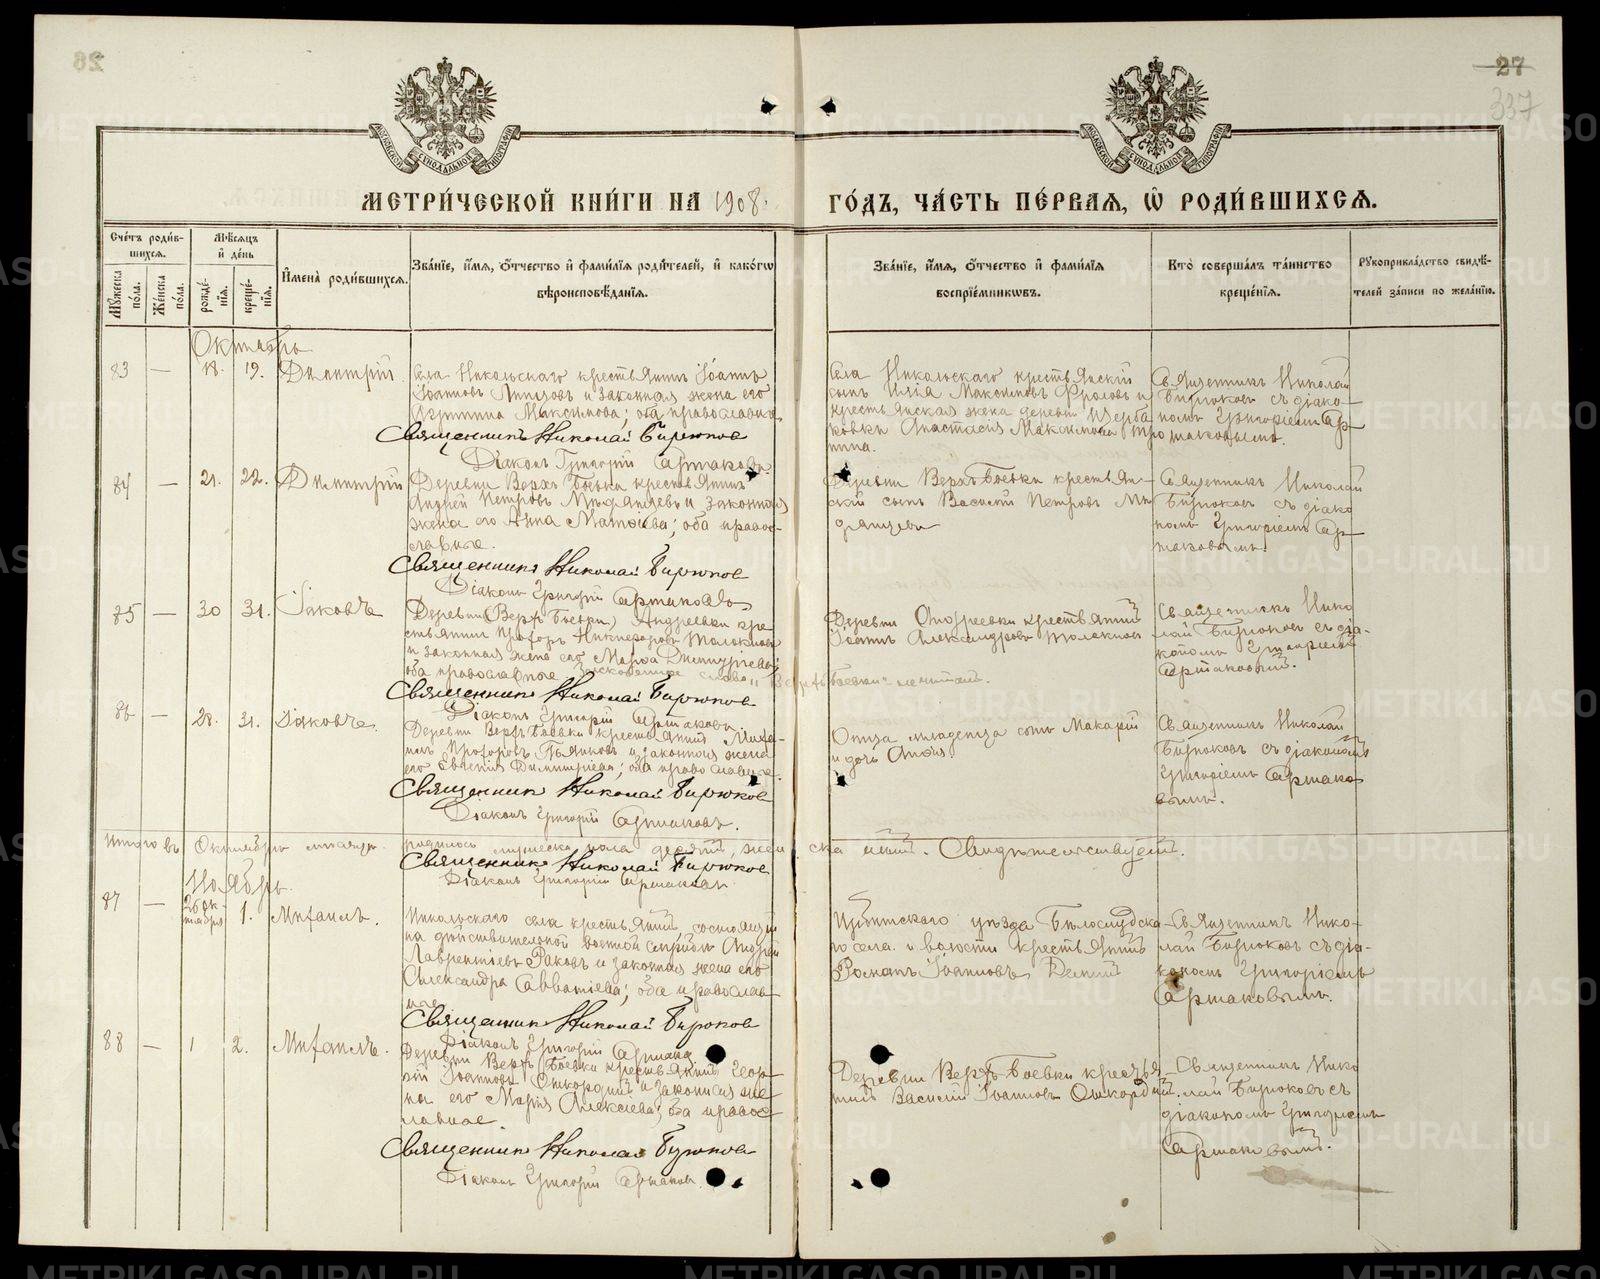 27
337
МЕТРИ́ЧЕСКОЙ КНИ́ГИ НА 1908. ГО́ДЪ, ЧА́СТЬ ПЕ́РВАЯ, Ѡ҆ РОДИ́ВШИХСЯ.
Сче́тъ роди́вшихся.
Му́жеска по́ла.
Же́нска по́ла.
Мѣ́сяцъ и҆ де́нь
рожде́нїя.
креще́нїя.
И҆мена̀ роди́вшихся.
Зва́нїе, и҆́мя, ѻ҆́тчество и҆ фами́лїя роди́телей, и҆ како́гѡ вѣроисповѣ́данїя.
Зва́нїе, и҆́мя, ѻ҆́тчество и҆ фами́лїя воспрїе́мникѡвъ.
Кто̀ соверша́лъ та́инство креще́нїя.
Рꙋкоприкла́дство свидѣ́телей за́писи по жела́нїю.
Октябрь
83 — 18. 19. Димитрій.
Села Никольскаго крестьянинъ Іоаннъ
Іоанновъ и законная жена его
Максимова; оба православные
Священникъ Николай Бирюковъ
Діаконъ Григорій Артаковъ
Села Никольскаго крестьянскій
сынъ Илія Максимовъ Фроловъ и
крестьянская жена деревни
Анастасія Максимова
Священникъ Николай
Бирюковъ съ діако-
номъ Григоріемъ Ар
таковымъ.
84 — 21. 22. Димитрій
Деревни Верхъ Боевки крестьянинъ
Андрей Петровъ и законная
жена его Анна Матѳіева; оба право-
славные.
Священникъ Николай Бирюковъ
Діаконъ Григорій Артаковъ
Деревни Верхъ Боевки крестьян-
скій сынъ Василій Петровъ
Священникъ Николай
Бирюковъ съ діако
номъ Григоріемъ Ар
таковымъ.
85 — 30 31. Іаковъ
Деревни (Верхъ Боевки) Андреевки кре
стьянинъ Никифоровъ Толокновъ
и законная жена его Марѳа Димитріева
оба православные слово „Верхъ Боевки“ не читать.
Священникъ Николай Бирюковъ
Діаконъ Григорій Артаковъ
Деревни крестьянинъ
Іоаннъ Александровъ Толокновъ
Священникъ Нико
лай Бирюковъ съ діа-
кономъ Григоріемъ
Артаковымъ.
86 — 28. 31. Іаковъ.
Деревни Верхъ Боевки крестьянинъ Миха-
илъ Прохоровъ и законная жена
его Евгенія Димитріева; оба православные.
Священникъ Николай Бирюковъ
Діаконъ Григорій Артаковъ.
Отца младенца сынъ Макарій
и дочь
Священникъ Николай
Бирюковъ съ діакономъ
Григоріемъ Артако
вымъ.
Итого въ Октябрѣ мѣсяцѣ родилось мужеска пола десять, жен ска Свидѣтельствуемъ.
Священникъ Николай Бирюковъ
Діаконъ Григорій Артаковъ
Ноябрь.
87 — 26 ок-
тября 1. Михаилъ.
Никольскаго села крестьянинъ, состоящій
на дѣйствительной военной службѣ Андрей
Лаврентіевъ Раковъ и законная жена его
Александра Савватіева; оба православ
ные
Священникъ Николай Бирюковъ
Діаконъ Григорій Артаковъ
Ирбитскаго уѣзда Бѣлослудска-
го села и волости крестьянинъ
Романъ Іоанновъ
Священникъ Нико-
лай Бирюковъ съ діа-
кономъ Григоріемъ
Артаковымъ.
88 — 1 2. Михаилъ.
Деревни Верхъ Боевки крестьянинъ Геор-
гій Іоанновъ и законная же
на его Марія Алексіева; оба право
славные.
Священникъ Николай Бирюковъ
Діаконъ Григорій Артаковъ.
Деревни Верхъ Боевки крестья
нинъ Василій Іоанновъ
Священникъ Нико
лай Бирюковъ съ
діакономъ Григоріемъ
Артаковымъ.
METRIKI.GASO-URAL.RU